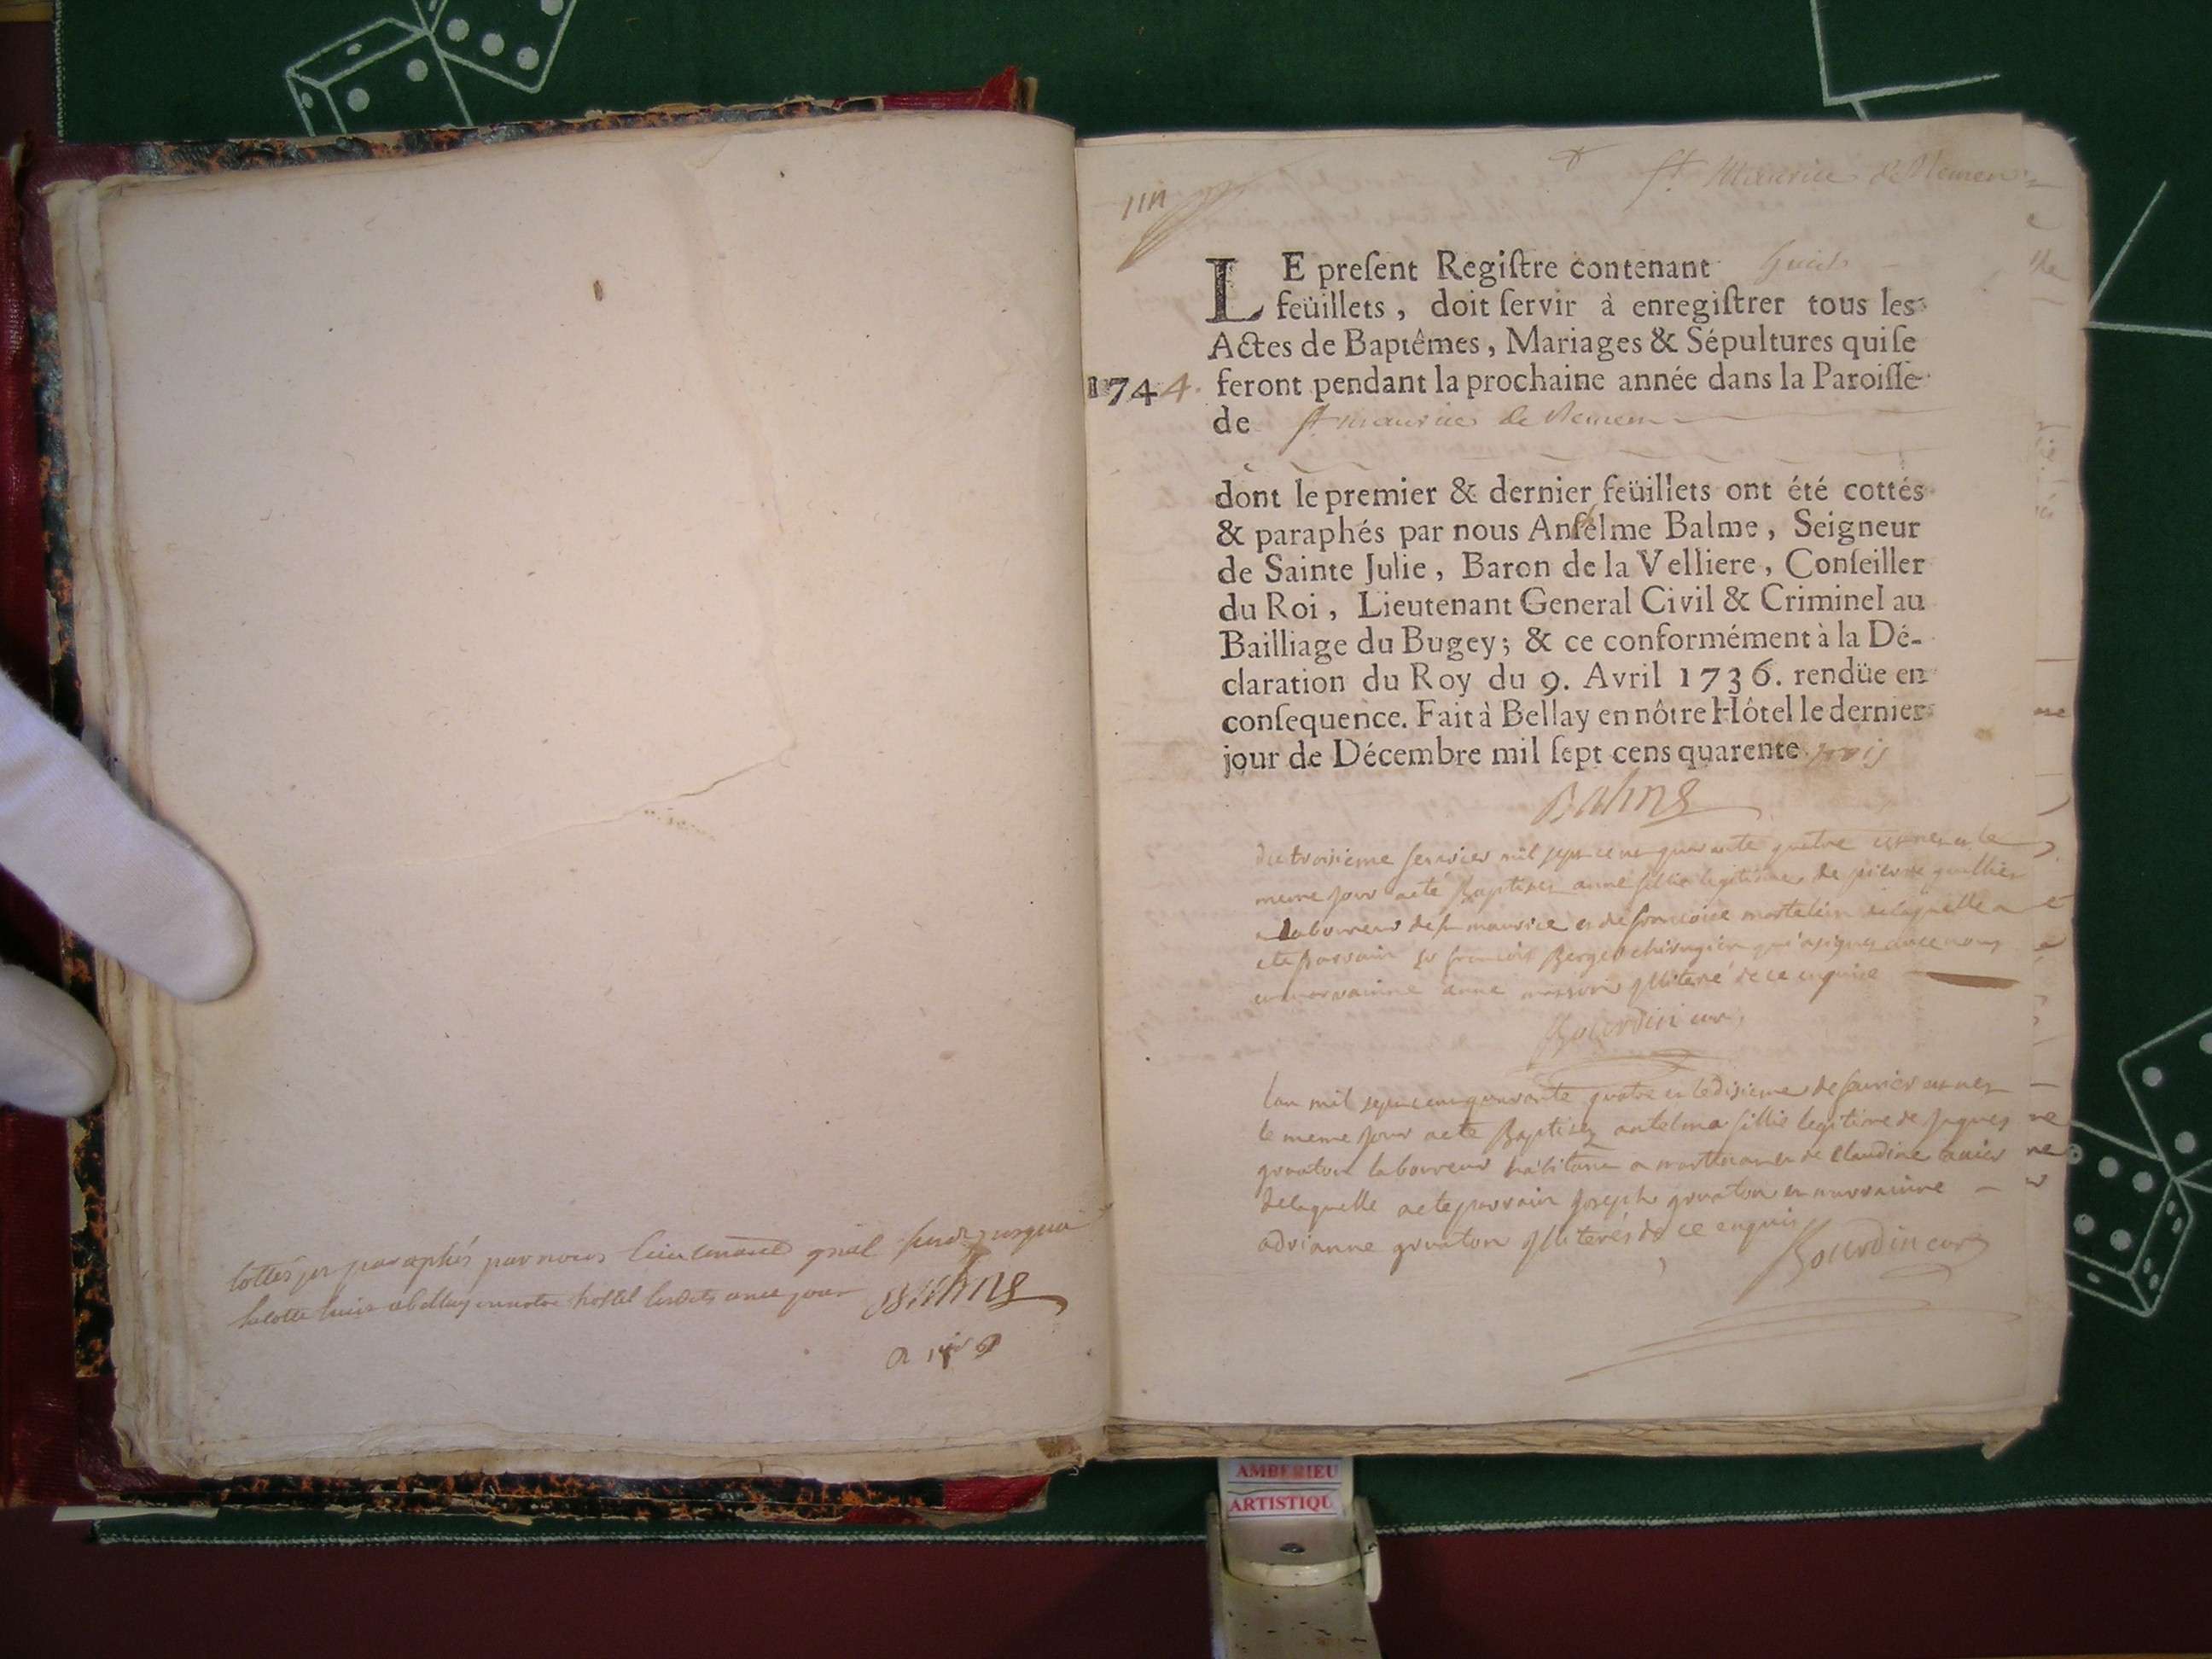 Cottés et paraphés par nous lieutenant gnal susdt jusqua
la cotte huict a bellay en notre hostel lesdits an et jour
Balme
St Maurice de Remens
LE preſent Regiſtre contenant huict
feüillets, doit ſervir à enregiſtrer tous les
Actes de Baptêmes, Mariages & Sépultures qui ſe
1744. feront pendant la prochaine année dans la Paroiſſe
de St maurice de Remens
dont le premier & dernier feüillets ont été cottés
& paraphés par nous Anſelme Balme, Seigneur
de Sainte Julie, Baron de la Velliere, Conſeiller
du Roi, Lieutenant General Civil & Criminel au
Bailliage du Bugey; & ce conformément à la Dé-
claration du Roy du 9. Avril 1736. rendüe en
conſequence. Fait à Bellay en nôtre Hôtel le dernier
jour de Décembre mil ſept cens quarente trois
Balme
du troisieme fevrier mil sept cent quarante quatre est nee et le
meme jour a eté Baptisee anne fillie legitime de pierre
laboureur de st maurice et de francoise martelin de laquelle a
ete parrain sr francois Berger chirurgien qui a signé avec nous
et marrainne anne illiteré de ce enquise
Bourdin curé
lan mil sept cent quarante quatre et le disieme de fevrier est nee
le meme jour a eté Baptisee antelma fillie legitime de jaques
gruaton laboureur habitant a et de Claudine
de laquelle a ete parrain joseph gruaton et marrainne
adrianne gruaton illiterés de ce enquis
Bourdin curé
AMBERIEU
ARTISTIQU